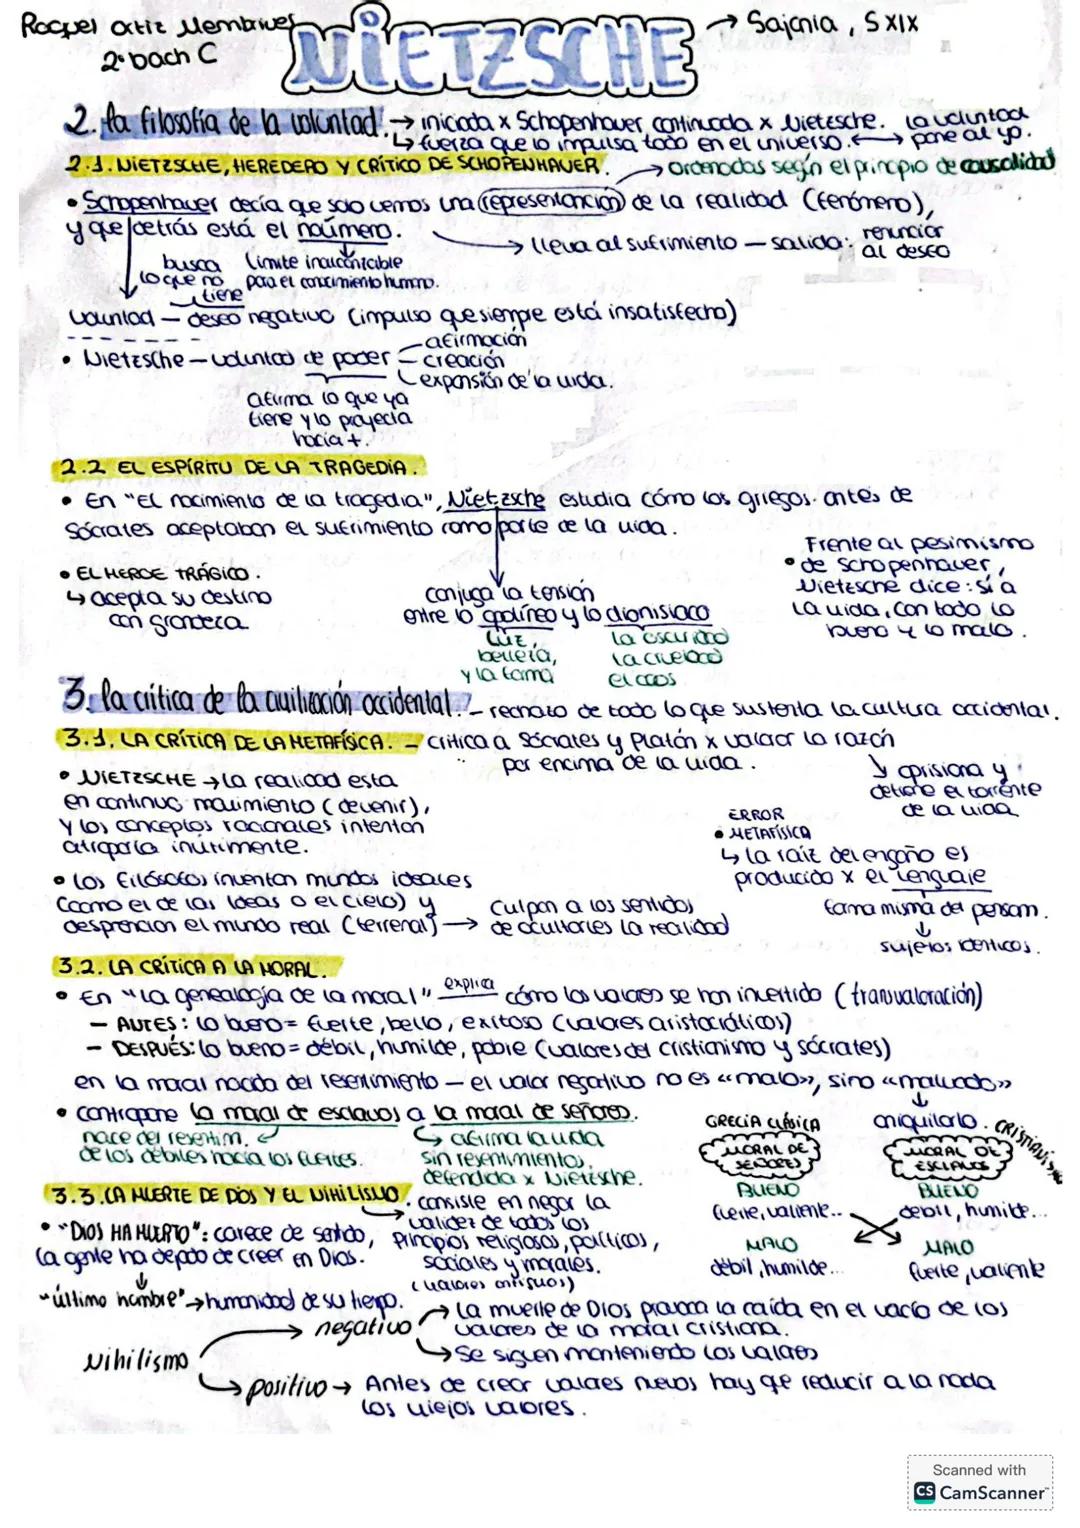 Raquel Ortiz Membrives
2º bach C
NIETZSCHE → Sajonia, S XIX
2. La filosofía de la voluntad. → iniciada x Schopenhauer continuada x Nietzsche. La voluntad
↳ fuerza que lo impulsa todo en el universo. ↔ pone al yo.
2.1. NIETZSCHE, HEREDERO Y CRÍTICO DE SCHOPENHAUER. → Ordenadas según el principio de causalidad
• Schopenhauer decía que solo vemos una representación de la realidad (fenómeno),
y que detrás está el noúmeno. → lleva al sufrimiento — salida: renunciar
al deseo
busca
lo que no
tiene
límite inalcanzable
para el conocimiento humano.
Voluntad — deseo negativo (impulso que siempre está insatisfecho)
• Nietzsche — voluntad de poder — afirmación
— creación
— expansión de la vida.
afirma lo que ya
tiene y lo proyecta
hacia +.
2.2 EL ESPÍRITU DE LA TRAGEDIA.
• En "El nacimiento de la tragedia", Nietzsche estudia cómo los griegos antes de
Sócrates aceptaban el sufrimiento como parte de la vida.
• EL HEROE TRÁGICO.
↳ acepta su destino
con grandeza
conjuga la tensión
entre lo apolíneo y lo dionisiaco
luz,
belleza,
y la forma
la oscuridad
la crueldad
el caos
Frente al pesimismo
• de Schopenhauer,
Nietzsche dice: sí a
la vida, con todo lo
bueno y lo malo.
3. La crítica de la civilización occidental. — rechazo de todo lo que sustenta la cultura occidental.
3.1. LA CRÍTICA DE LA METAFÍSICA. — critica a Sócrates y Platón x valorar la razón
por encima de la vida.
↓ aprisiona y
detiene el torrente
de la vida
• NIETZSCHE → La realidad esta
en continuo movimiento (devenir),
y los conceptos racionales intentan
atraparla inutilmente.
ERROR
• METAFÍSICA
↳ la raíz del engaño es
producido x el lenguaje
forma misma del pensam.
↓
sujetos identicos.
• Los filósofos inventan mundos ideales
(como el de las ideas o el cielo) y
desprecian el mundo real (terrenal) → culpan a los sentidos
de ocultarles la realidad
3.2. LA CRÍTICA A LA MORAL.
• En "La genealogía de la moral" explica cómo los valores se han invertido (transvaloración)
— ANTES: lo bueno = fuerte, bello, exitoso (valores aristocráticos)
— DESPUÉS: lo bueno = débil, humilde, pobre (valores del cristianismo y sócrates)
en la moral nacida del resentimiento — el valor negativo no es «malo», sino «malvado»
↓
aniquilarlo.
• contrapone la moral de esclavos a la moral de señores.
nace del resentim.
de los débiles hacia los fuertes.
↳ afirma la vida
sin resentimientos,
defendida x Nietzsche.
GRECIA CLÁSICA
MORAL DE
SEÑORES
BUENO
fuerte, valiente..
MALO
débil, humilde...
CRISTIANISMO
MORAL DE
ESCLAVOS
BUENO
debil, humilde...
MALO
fuerte, valiente
3.3. LA MUERTE DE DIOS Y EL NIHILISMO. consiste en negar la
validez de todos los
principios religiosos, políticos,
sociales y morales.
(valores antiguos)
• "DIOS HA MUERTO": carece de sentido,
la gente ha dejado de creer en Dios.
↓
"último hombre" → humanidad de su tiempo.
Nihilismo
→ negativo → La muerte de Dios provoca la caída en el vacío de los
valores de la moral cristiana.
↳ Se siguen manteniendo los valores
↳ positivo → Antes de crear valores nuevos hay que reducir a la nada
los viejos valores.
Scanned with
CS CamScanner